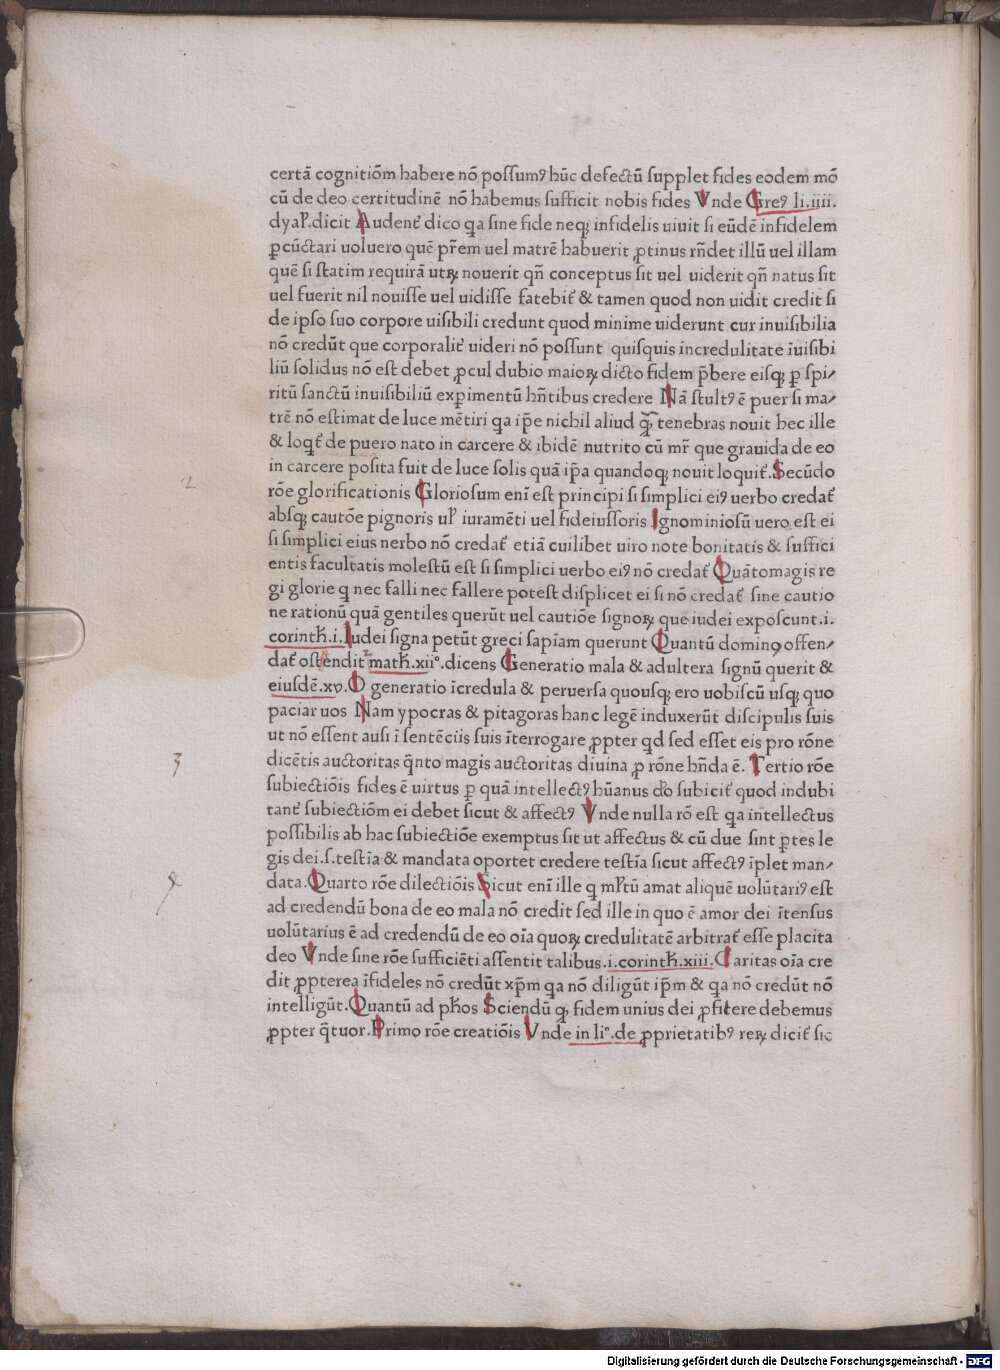 certā cognitiōm habere nō poſſumꝰ hūc defectū ſupplet fides eodem mō
cū de deo certitudinē nō habemus ſufficit nobis fides Vnde Greꝰ li.iiii.
dyaƚ.dicit Audent᷑ dico qa ſine fide neqꝫ infidelis uiuit ſi eūdē infidelem
ꝑcūctari uoluero quē pr̄em uel matrē habuerit ꝓtinus rn̄det illū uel illam
quē ſi ſtatim requirā utꝝ nouerit qn̄ conceptus ſit uel uiderit qn̄ natus ſit
uel fuerit nil nouiſſe uel uidiſſe fatebit᷑ & tamen quod non uidit credit ſi
de ipſo ſuo corpore uiſibili credunt quod minime uiderunt cur inuiſibilia
nō credūt que corporalit᷑ uideri nō poſſunt quiſquis incredulitate īuiſibi
liū ſolidus nō eſt debet ꝓcul dubio maioꝝ dicto fidem p̄bere eiſqꝫ ꝑ ſpi⸗
ritū ſanctū inuiſibiliū exꝑimentū hn̄tibus credere Nā ſtultꝰ ē puer ſi ma⸗
trē nō eſtimat de luce mētiri qa ip̄e nichil aliud ꝙ̄ tenebras nouit hec ille
& loqt᷑ de puero nato in carcere & ibidē nutrito cū mr̄ que grauida de eo
in carcere poſita fuit de luce ſolis quā ip̄a quandoqꝫ nouit loquit᷑.Secūdo
rōe glorificationis Glorioſum enī eſt principi ſi ſimplici eiꝰ uerbo credat᷑
abſqꝫ cautōe pignoris uƚ iuramēti uel fideiuſſoris Ignominioſū uero eſt ei
ſi ſimplici eius nerbo nō credat᷑ etiā cuilibet uiro note bonitatis & ſuffici
entis facultatis moleſtū eſt ſi ſimplici uerbo eiꝰ nō credat᷑ Quātomagis re
gi glorie q nec falli nec fallere poteſt diſplicet ei ſi nō credat᷑ ſine cautio
ne rationū quā gentiles querūt uel cautiōe ſignoꝝ que iudei expoſcunt.i.
corintħ.i.Iudei ſigna petūt greci ſapīam querunt Quantū dominꝰ offen⸗
dat᷑ oſtendit matħ.xiiº.dicens Generatio mala & adultera ſignū querit &
eiuſdē.xv.O generatio īcredula & peruerſa quouſqꝫ ero uobiſcū uſqꝫ quo
paciar uos Nam ypocras & pitagoras hanc legē induxerūt diſcipulis ſuis
ut nō eſſent auſi ī ſentēciis ſuis īterrogare ꝓpter qd ſed eſſet eis pro rōne
dicētis auctoritas q̄nto magis auctoritas diuina ꝓ rōne hn̄da ē. Tertio rōe
ſubiectiōis fides ē uirtus ꝑ quā intellectꝰ hūanus do̅ ſubicit᷑ quod indubi
tant᷑ ſubiectiōm ei debet ſicut & affectꝰ Vnde nulla rō eſt qa intellectus
poſſibilis ab hac ſubiectiōe exemptus ſit ut affectus & cū due ſint ꝑtes le
gis dei.ſ.teſtīa & mandata oportet credere teſtīa ſicut affectꝰ īplet man⸗
data.Quarto rōe dilectiōis Sicut enī ille q mƚtū amat aliquē uolūtariꝰ eſt
ad credendū bona de eo mala nō credit ſed ille in quo ē amor dei ītenſus
uolūtarius ē ad credendū de eo oīa quoꝝ credulitatē arbitrat᷑ eſſe placita
deo Vnde ſine rōe ſufficiēti aſſentit talibus.i.corintħ.xiii.Caritas oīa cre
dit ꝓpterea īfideles nō credūt xp̄m qa nō diligūt ip̄m & qa nō credūt nō
intelligūt.Quantū ad pħos Sciendū ꝙ fidem unius dei ꝓfitere debemus
ꝓpter q̄tuor.Primo rōe creatiōis Vnde in liº.de ꝓprietatibꝰ reꝝ dicit᷑ ſic
2
3
4
Digitalisierung gefördert durch die Deutsche Forschungsgemeinschaft - DFG